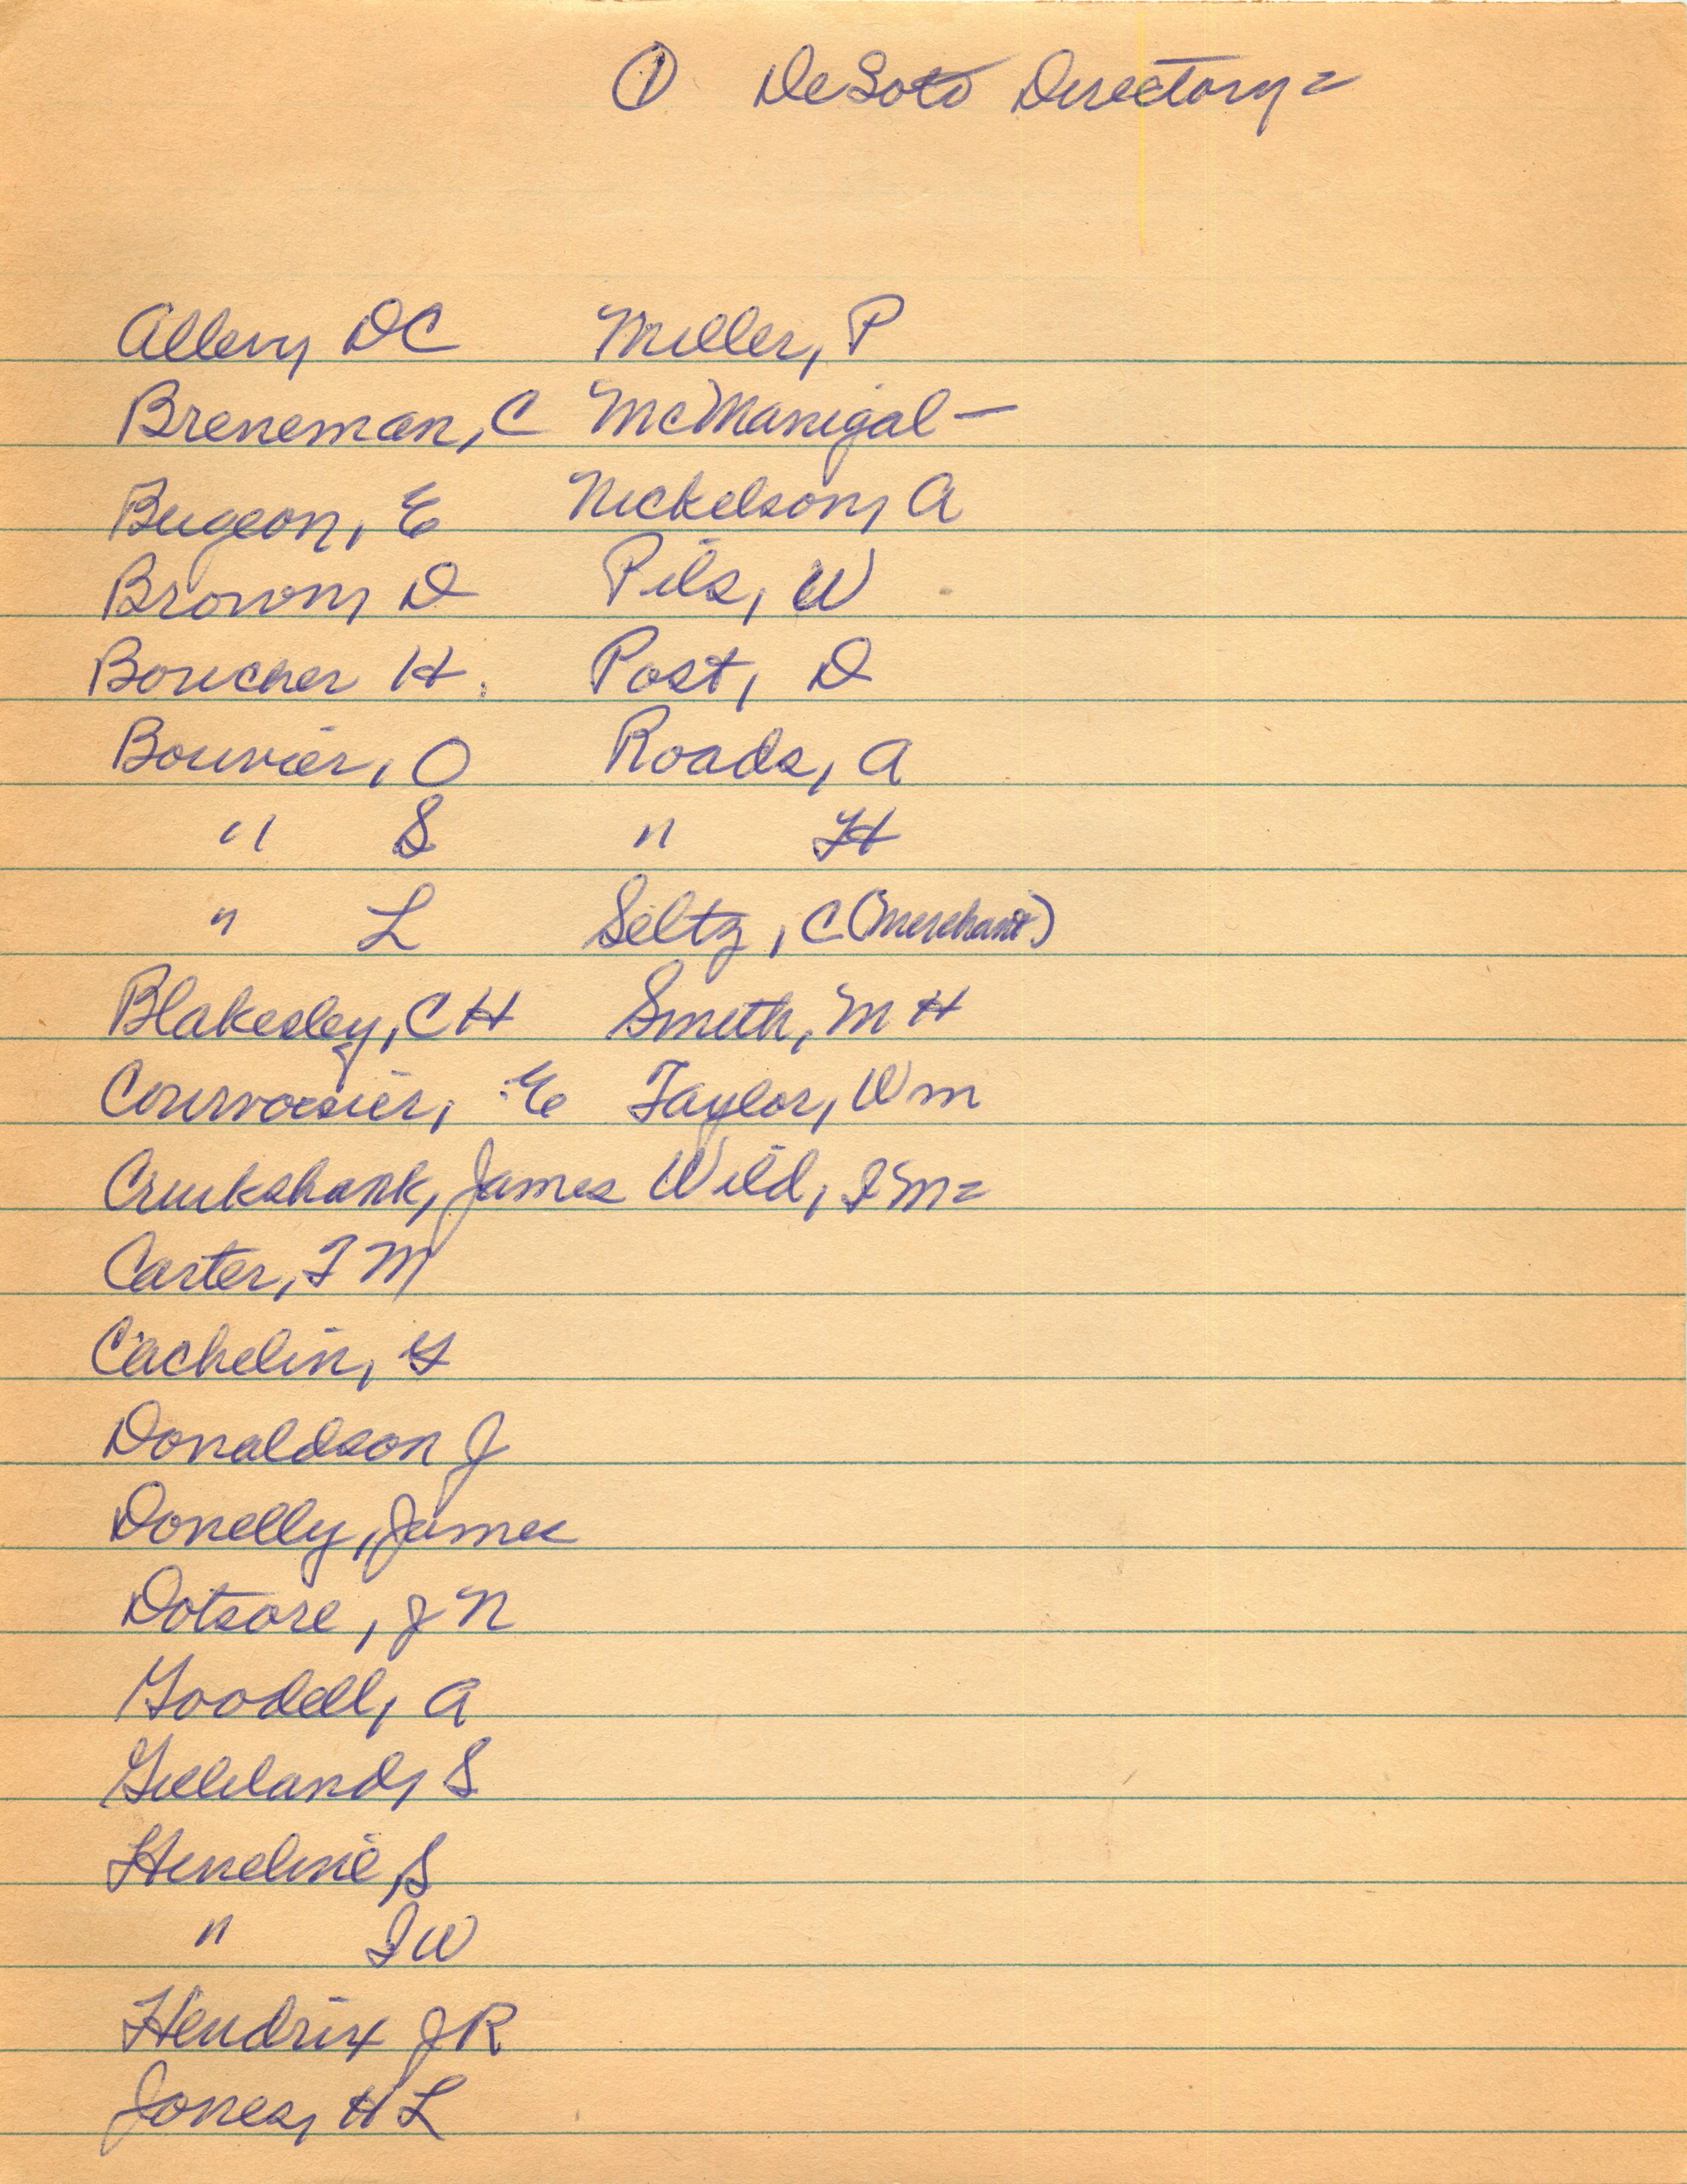 ① DeSoto Directory =
Allen, DC
Breneman, C
Bugeon, E
Brown, D
Boucher H.
Bouvier, O
" S
" L
Blakesley, C H
Courvoisier, E
Cruikshank, James
Carter, T M
Cachelin, G
Donaldson J
Donelly, James
Dotsore, J N
Goodell, A
Gilliland, S
Hineline, S
" I W
Hendrix J R
Jones, H L
Miller, P
McManigal —
Nickelson, A
Pils, W
Post, D
Roads, A
" H
Seltz, C (Merchant)
Smith, M H
Taylor, Wm
Wild, I M =